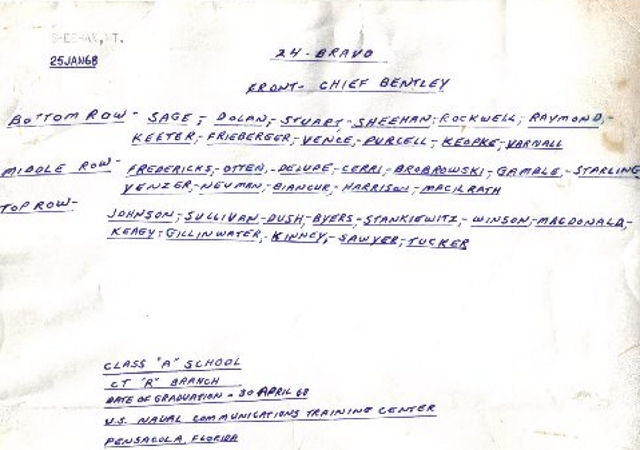 SHEEHAN, WT.
25JAN68
24-BRAVO
FRONT- CHIEF BENTLEY
BOTTOM ROW - SAGE,- DOLAN,- STUART,- SHEEHAN,- ROCKWELL, RAYMOND,-
KEETER,- FRIEBERGER,- VENCE,- PURCELL,- KEOPKE,- VARNALL
MIDDLE ROW- FREDERICKS,- OTTEN,- DELUDE,- CERRI,- BROBROWSKI,- GAMALE,- STARLING
VENZER,- NEUMAN,- BIANCUR,- HARRISON,- MACILRATH
TOP ROW- JOHNSON,- SULLIVAN,- DUSH,- BYERS,- STANKIEWITZ,- WINSON,- MACDONALD,-
KEAGY,- GILLINWATER,- KINNEY,- SAWYER,- TUCKER
CLASS "A" SCHOOL
CT "R" BRANCH
DATE OF GRADUATION - 30 APRIL 68
U.S. NAVAL COMMUNICATIONS TRAINING CENTER
PENSACOLA, FLORIDA